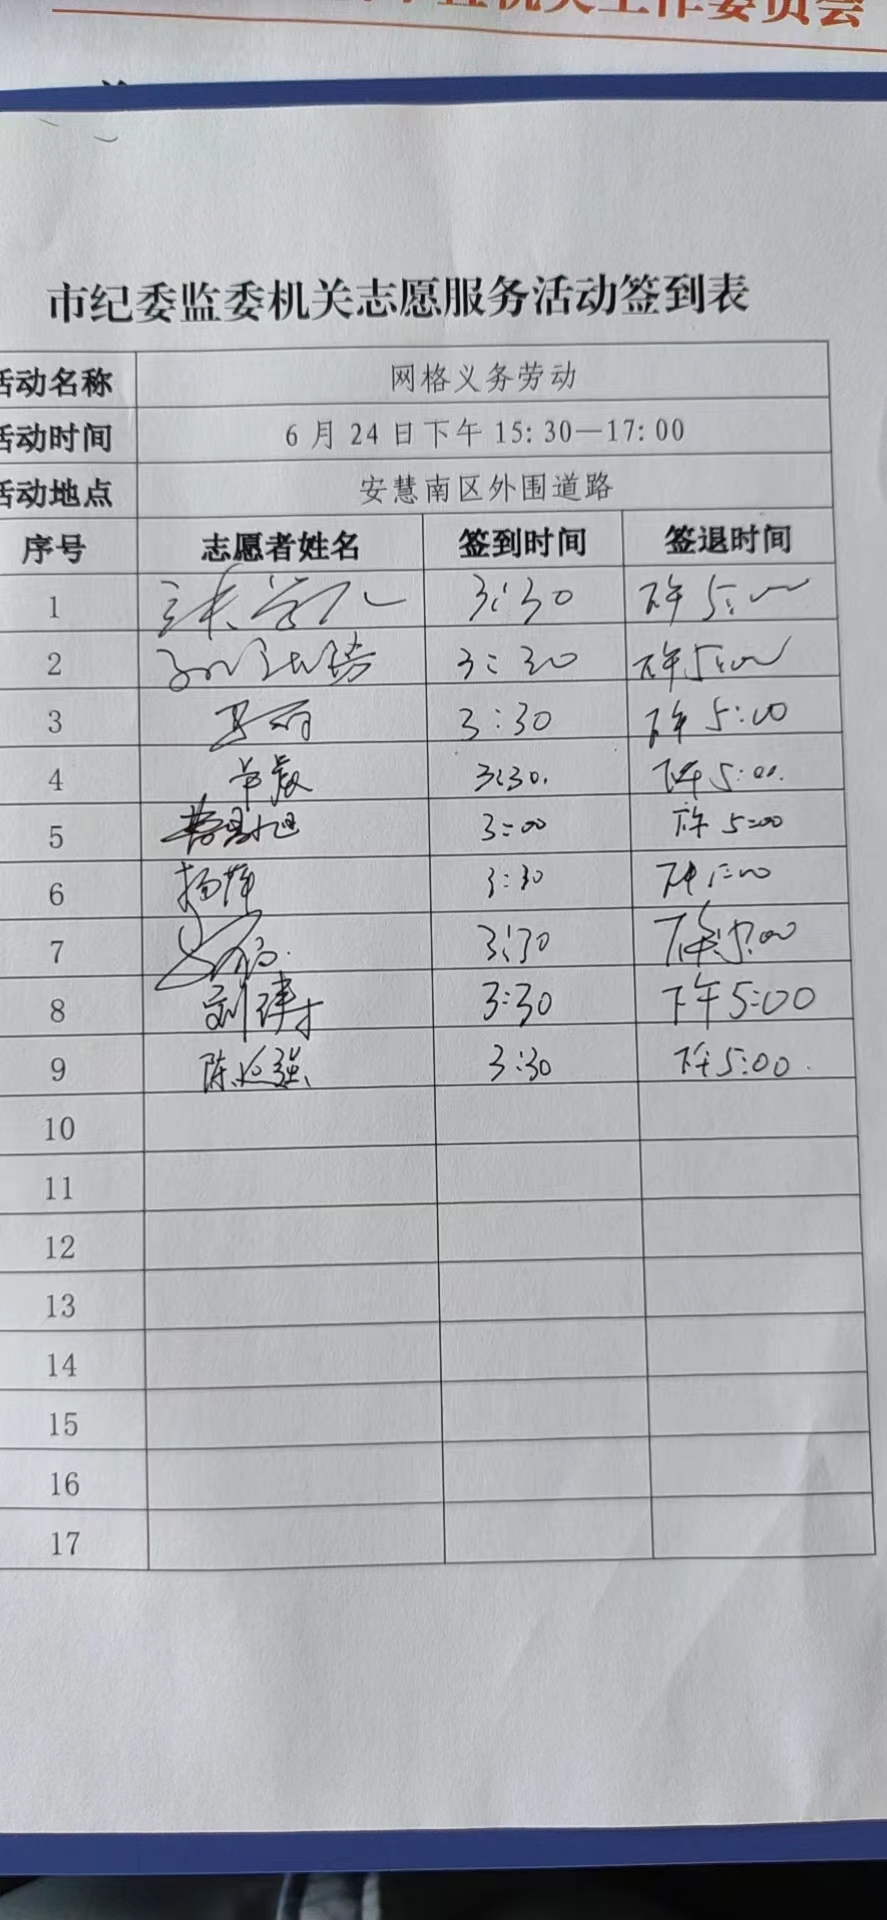 直机关工作委员会
市纪委监委机关志愿服务活动签到表
活动名称 网格义务劳动
活动时间 6月24日下午15:30—17:00
活动地点 安慧南区外围道路
序号 志愿者姓名 签到时间 签退时间
1 3:30 下午5:00
2 3:30 下午5:00
3 3:30 下午5:00
4 3:30. 下午5:00.
5 3:00 下午5:00
6 杨辉 3:30 下午5:00
7 3:30 下午5:00
8 刘建才 3:30 下午5:00
9 陈延强 3:30 下午5:00.
10
11
12
13
14
15
16
17